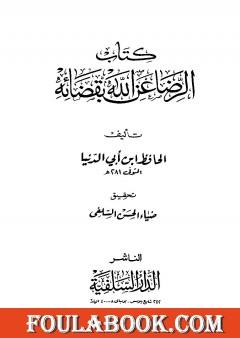 كتاب
الرضا عن الله بقضائه
تأليف
الحافظ ابن أبي الدنيا
المتوفى ٢٨١ هـ
تحقيق
ضياء الحسن السلفي
الناشر
الدار السلفية
FOULABOOK.COM